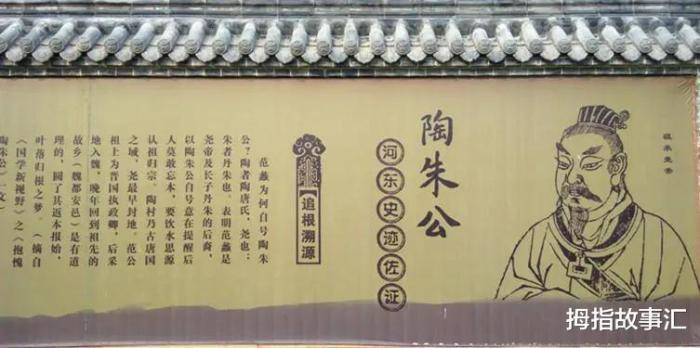 陶朱公
河东史迹佐证
【追根溯源】
范蠡为何自号陶朱
公?陶者陶唐氏,尧也;
朱者丹朱也。表明范蠡是
尧帝及长子丹朱的后裔,
以陶朱公自号意在提醒后
人莫敢忘本,要饮水思源
认祖归宗。陶村乃古唐国
之域,尧最早封地。范公
祖上为晋国执政卿,后采
地入魏,晚年回到祖先的
故乡(魏都安邑)是有道
理的,圆了其返本报始,
叶落归根之梦。(摘自
《国学新视野》之《抱愧
陶朱公》一文)
拇指故事汇